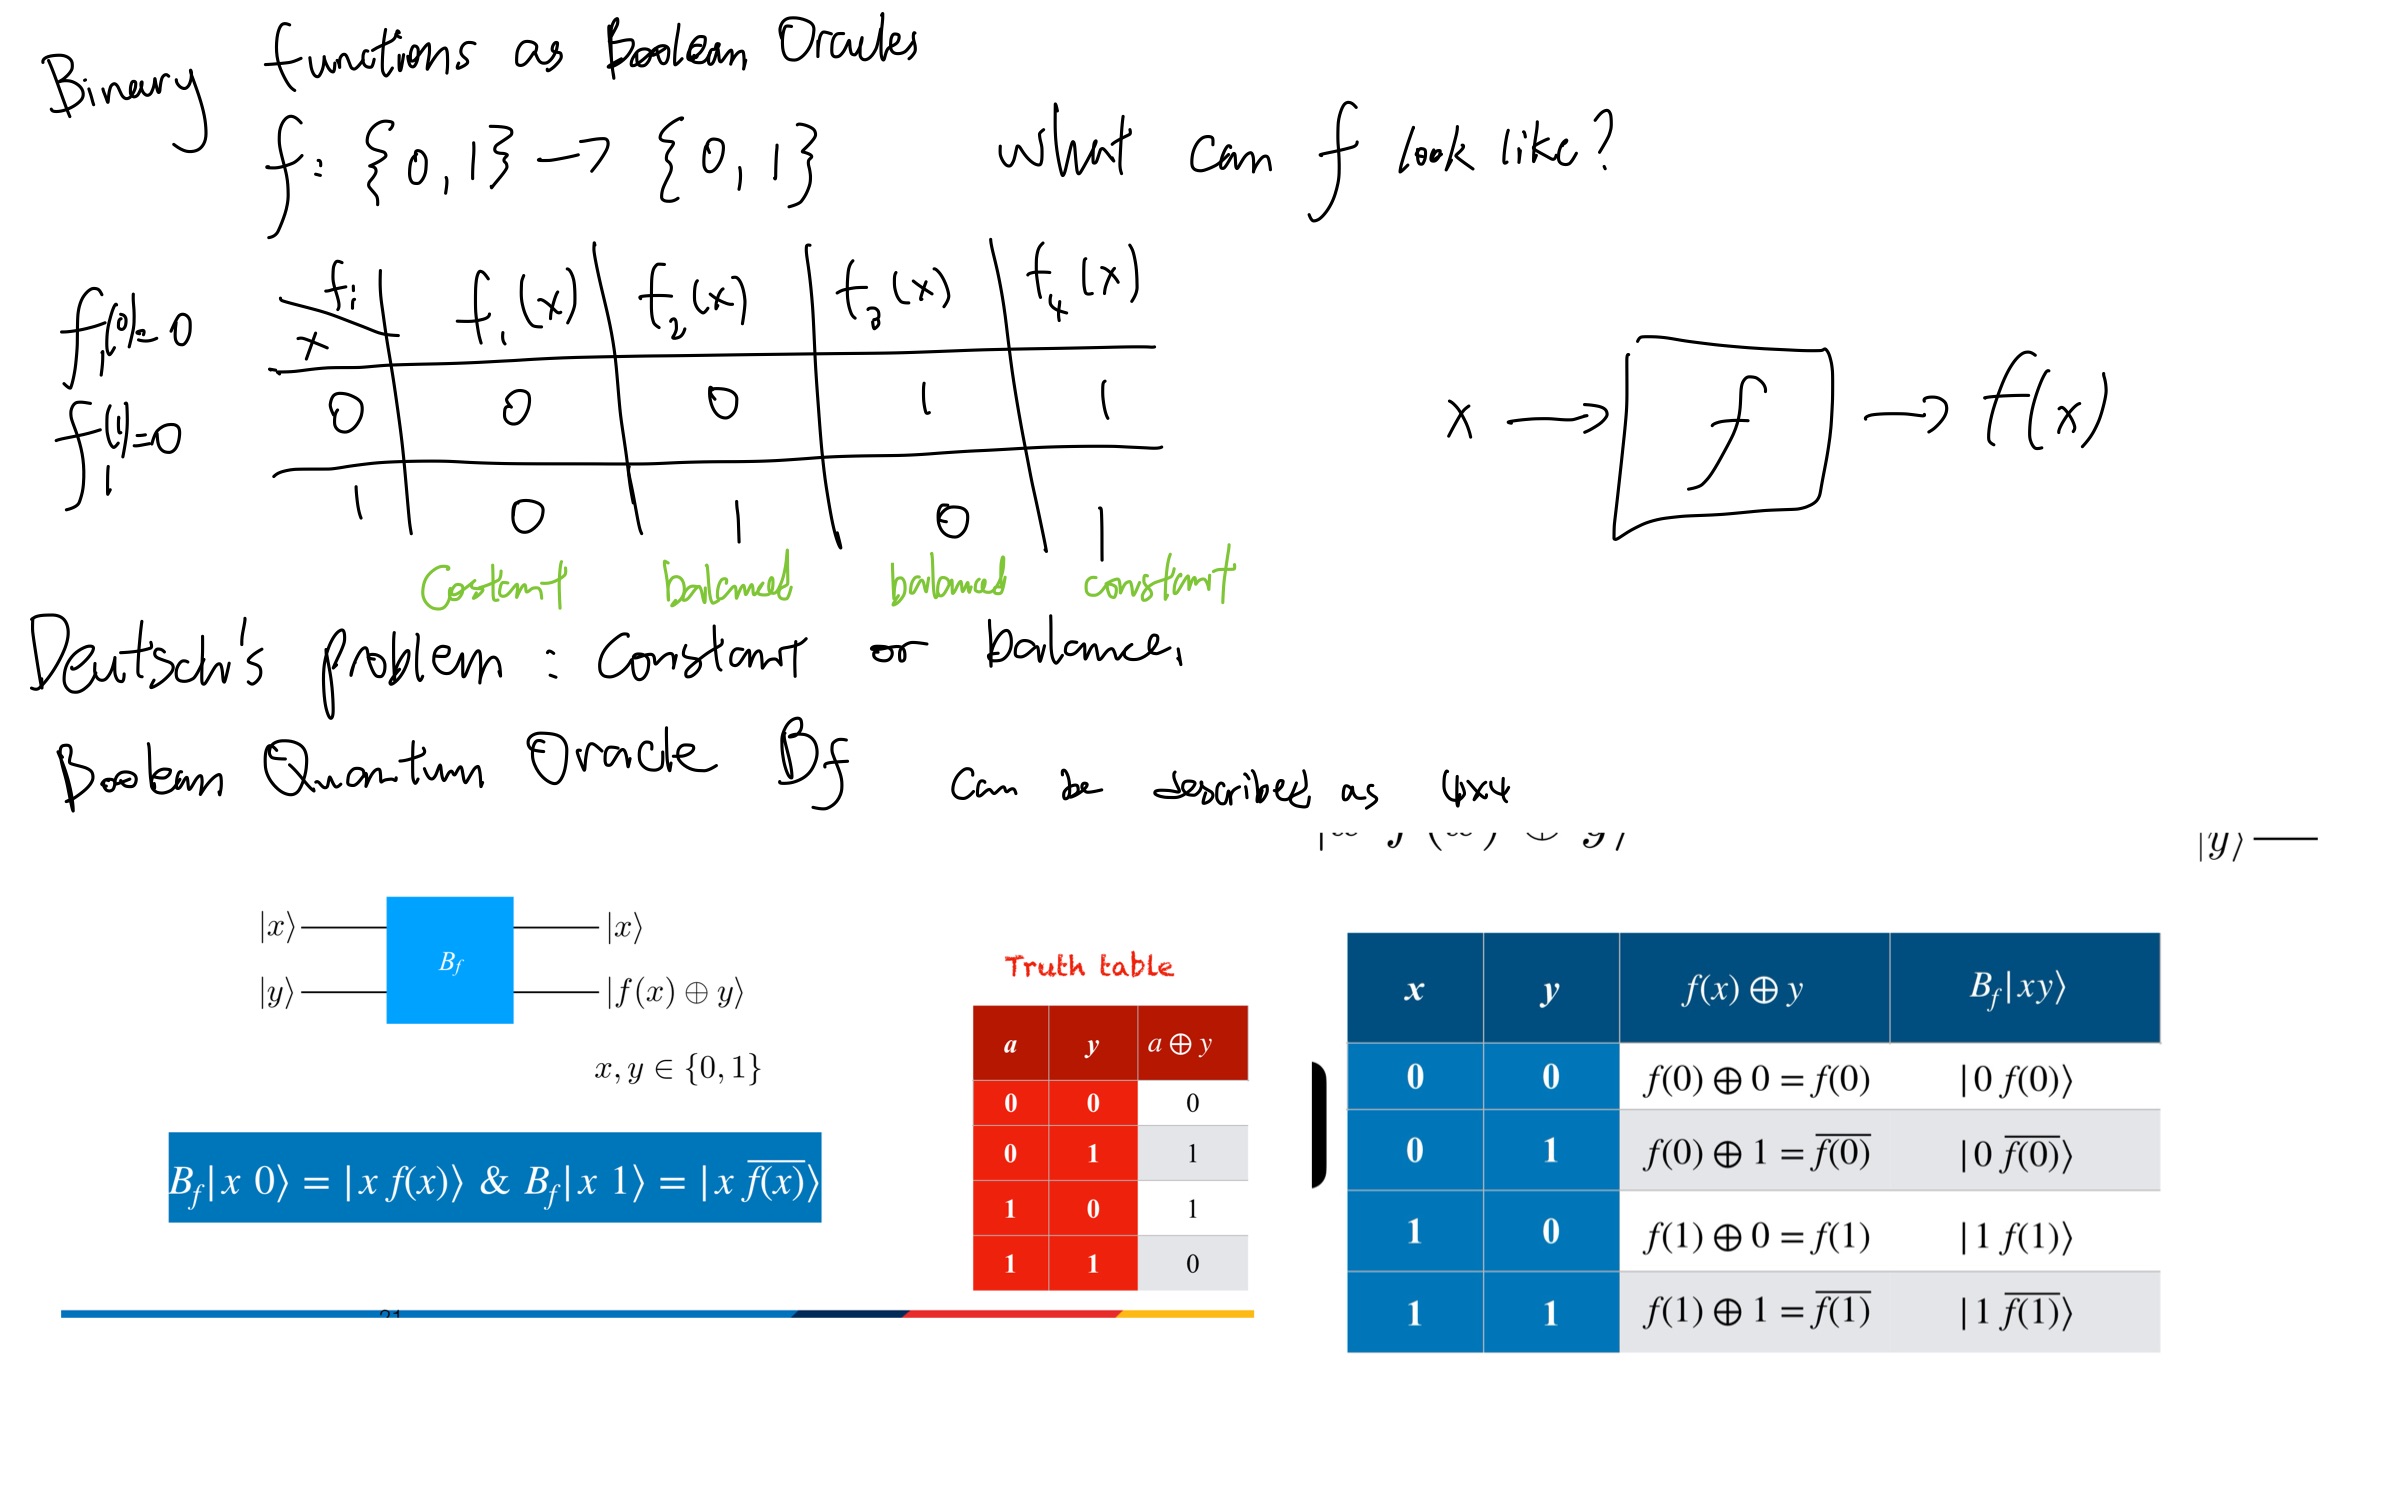 Binary functions as Boolean Oracles
f: {0,1} → {0,1} what can f look like?
f₁(0)=0
f₁(1)=0
x fi f₁(x) f₂(x) f₃(x) f₄(x)
0 0 0 1 1
1 0 1 0 1
Costant balanced balanced constant
x → f → f(x)
Deutsch's problem : Constant or balance.
Boolean Quantum Oracle Bf can be described as 4x4
|y⟩
|x⟩ B_f |x⟩
|y⟩ |f(x) ⊕ y⟩
x, y ∈ {0, 1}
B_f|x 0⟩ = |x f(x)⟩ & B_f|x 1⟩ = |x \overline{f(x)}⟩
Truth table
a y a ⊕ y
0 0 0
0 1 1
1 0 1
1 1 0
x y f(x) ⊕ y B_f|xy⟩
0 0 f(0) ⊕ 0 = f(0) |0 f(0)⟩
0 1 f(0) ⊕ 1 = \overline{f(0)} |0 \overline{f(0)}⟩
1 0 f(1) ⊕ 0 = f(1) |1 f(1)⟩
1 1 f(1) ⊕ 1 = \overline{f(1)} |1 \overline{f(1)}⟩